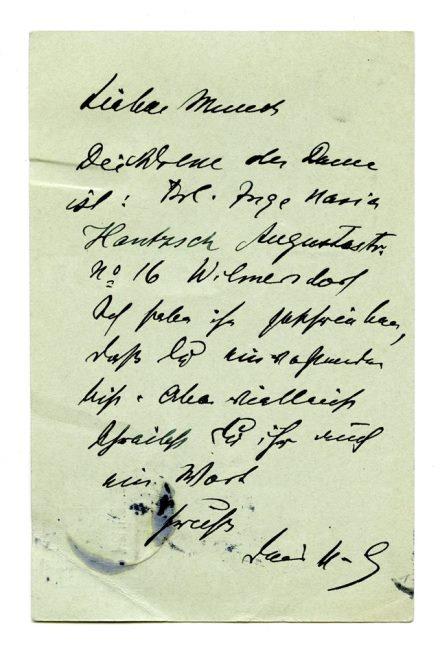 Lieber Munch
Die Adresse der Dame
ist: Frl. Inge Maria
Hantzsch Augustastr.
No 16 Wilmersdorf
Ich habe ihr geschrieben,
daß Du
bist. Aber vielleicht
schreibst Du ihr auch
ein Wort
Gruß